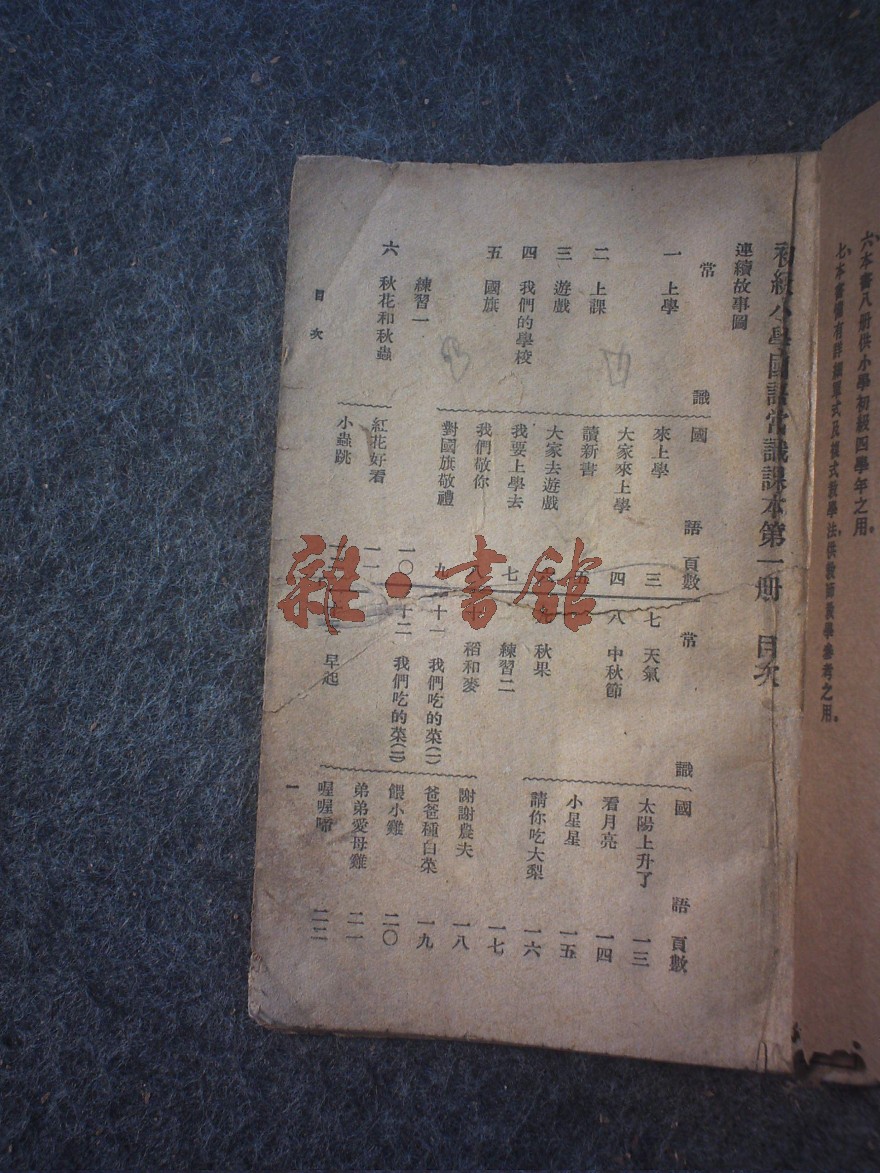 六、本書八册供小學初級四學年之用。
七、本書備有詳細單式及複式教學法，供教師教學參考之用。
初級小學國語常識課本第一册 目次
連續故事圖
常識 國語 頁數
一 上學 來上學 三
大家來上學 四
二 上課 讀新書 五
三 遊戲 大家去遊戲
四 我們的學校 我要上學去 七
五 國旗 我們敬你
對國旗敬禮 九
練習一 一〇
六 秋花和秋蟲 紅花好看 一一
小蟲跳
常識 國語 頁數
七 天氣 太陽上升了 一三
八 中秋節 看月亮 一四
小星星 一五
秋果 請你吃大梨 一六
練習二 一七
稻和麥 謝謝農夫 一八
十一 我們吃的菜(一) 爸爸種白菜 一九
十二 我們吃的菜(二) 餵小雞 二〇
弟弟愛母雞 二一
早起 喔喔啼 二二
目次
一
雜·書館